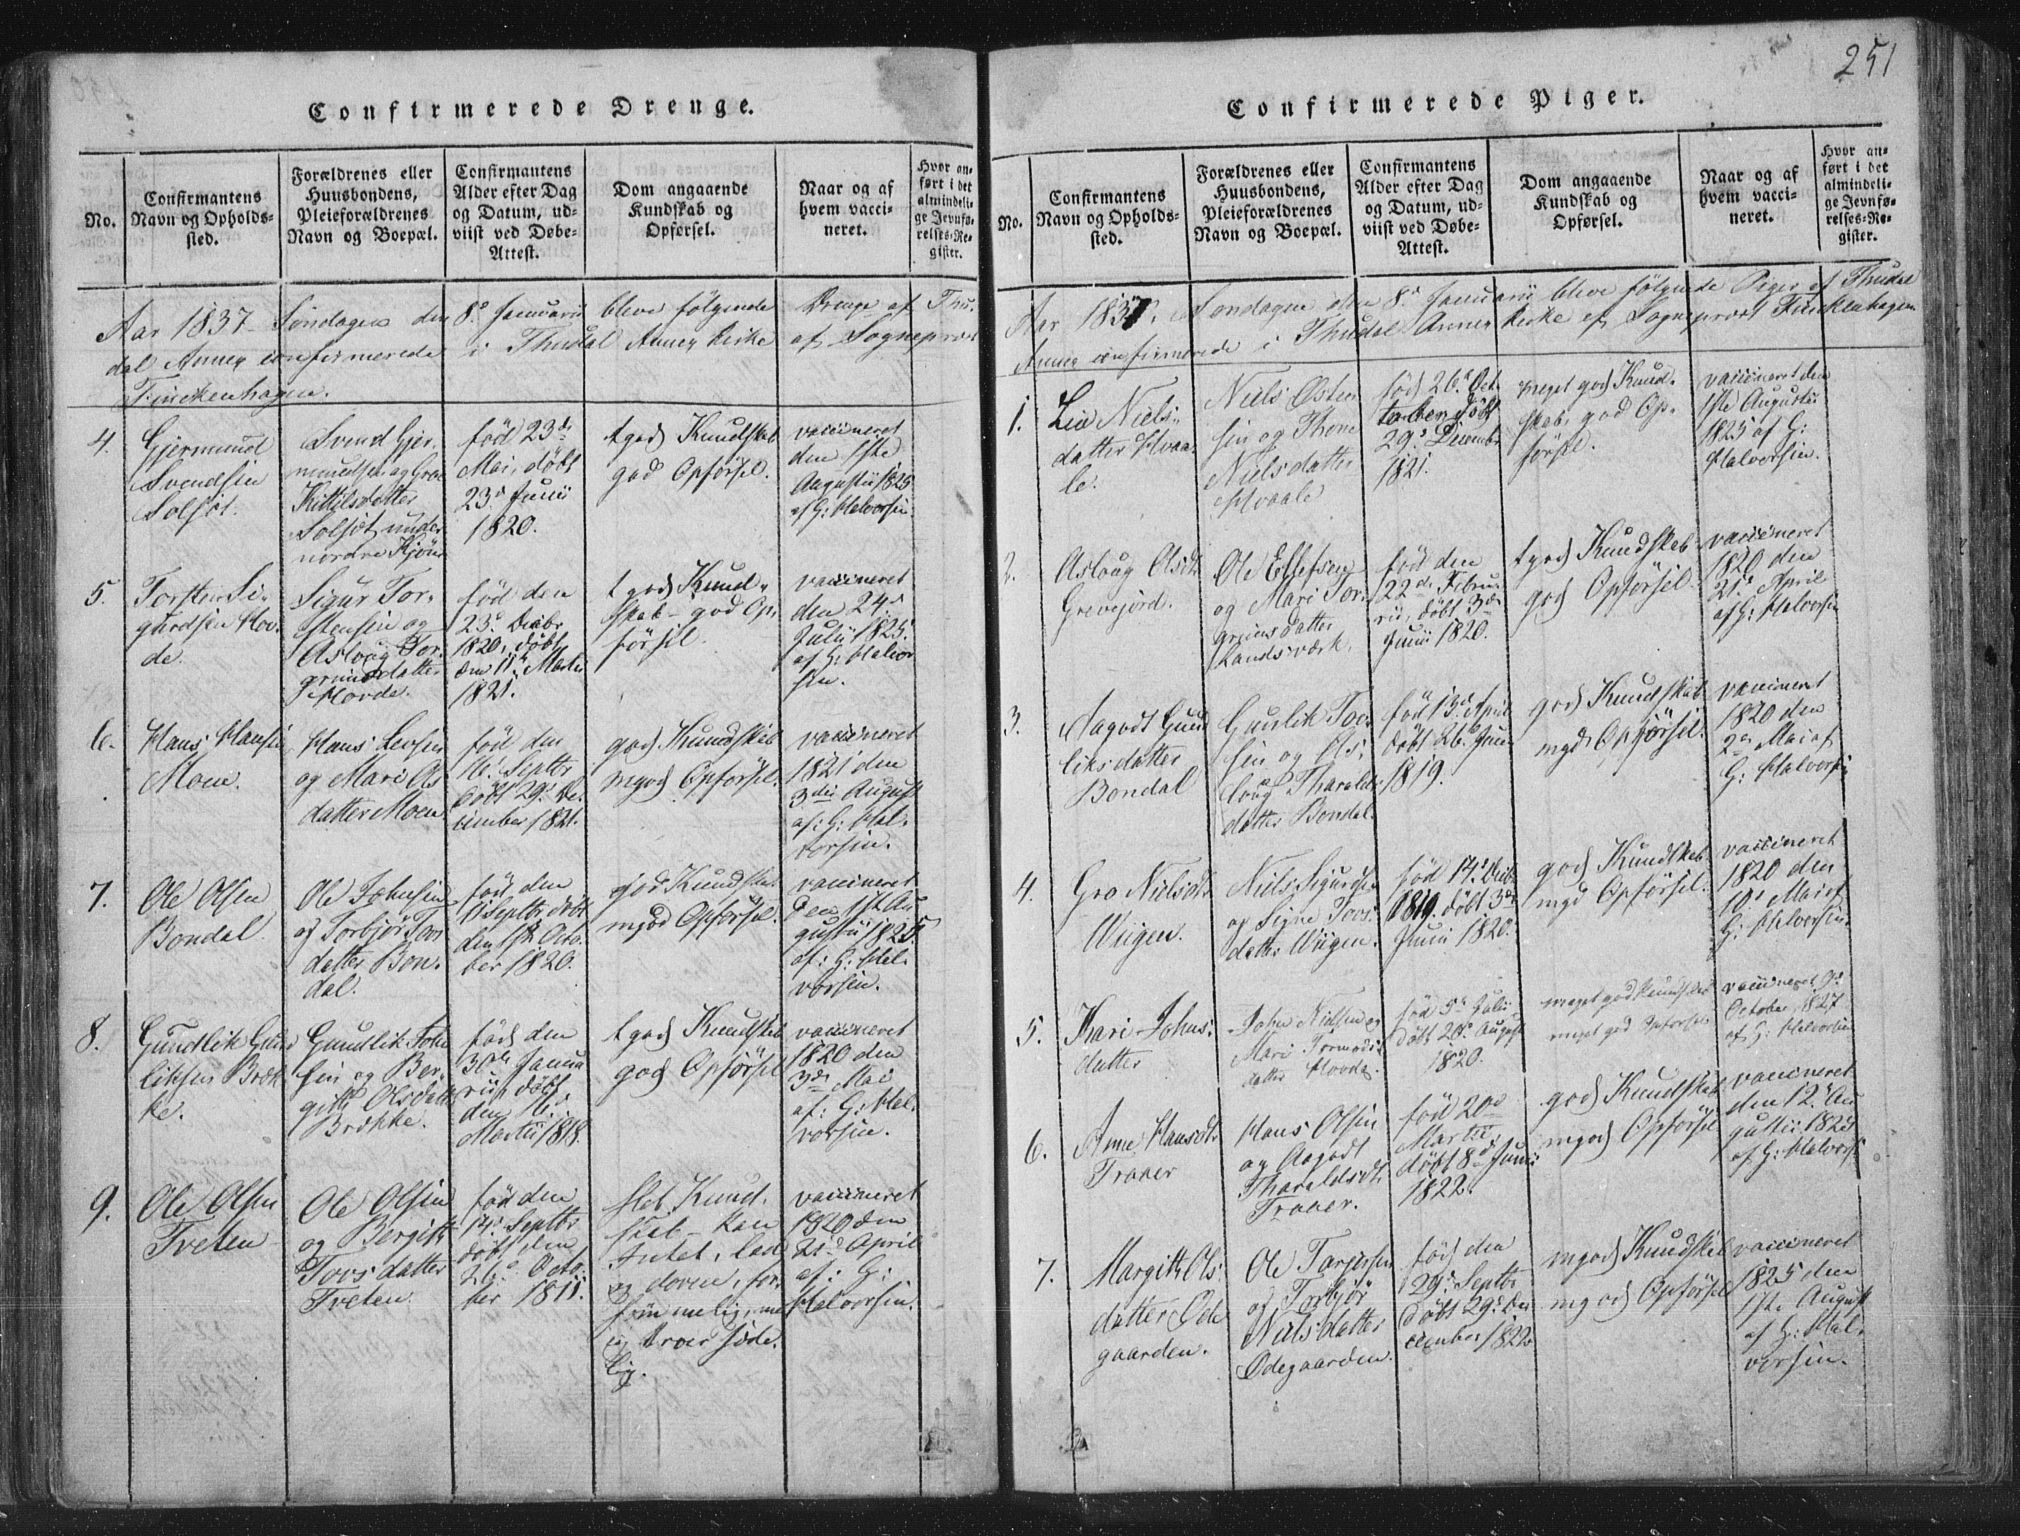 251
Confirmerede Drenge.
No.
Confirmantens
Navn og Opholds-
sted.
Forældrenes eller
Huusbondens,
Pleieforældrenes
Navn og Boepæl.
Confirmantens
Alder efter Dag
og Datum, ud-
viist ved Døbe-
Attest.
Dom angaaende
Kundskab og
Opførsel.
Naar og af
hvem vacci-
neret.
Hvor an-
ført i det
almindeli-
ge Jevnfø-
relses-Re-
gister.
Aar 1837 Søndagen den 8d Januarii bleve følgende Drenge af Thu-
dal Annex confirmerede i Thudal Annex Kirke af Sogneprest
Finckenhagen.
4.
Gjermund
Svendsen
Solsøt.
Svend Gjer
mundsen og Groe
Kittilsdatter
Solsøt under
nordre
fød 23de
Mai, døbt
23d Junii
1820.
tgod Kundskab
god Opførsel.
vaccineret
den 1ste
Augustii 1825
af G: Halvorsen.
5.
Torsten Si-
gurdsen Hov-
de.
Sigur Tor-
stensen og
Aslaug Tor-
grimsdatter
Hovde.
fød den
23d Decbr
1820, døbt
den 11te Martii
1821.
tgod Kund-
skab - god Op-
førsel.
vaccineret
den 24d
Julii 1825
af G: Halvor
sen.
6.
Hans Hansen
Moen.
Hans Levsen
og Mari Ols
datter Moen
fød den
16d Septbr
døbt 29d De-
cember 1821.
god Kundskab
mgod Opførsel.
vaccineret
1821 den
3die August
af: G: Hal-
vorsen.
7.
Ole Olsen
Bondal.
Ole Johnsen
og Torbjør Tovs
datter Bon-
dal.
fød den
11 Septbr døbt
den 1ste Octo-
ber 1820.
god Kundskab
mgod Opførsel.
vaccineret
den 1st Au
gustii 1825.
af: G: Hal-
vorsen.
8.
Gundlik Gund
liksen Bræk-
ke.
Gundlik John
sen og Ber-
gith Olsdatter
Brække.
fød den
30te Janua
rii, døbt
den 16d
Martii 1818.
tgod Kundskab
god Opførsel
vaccineret
1820 den
3die Mai
af: G: Hal-
vorsen.
9.
Ole Olsen
Tveten
Ole Olsen
og Bergith
Tovsdatter
Tveten.
fød den
14d Septbr
døbt den
26d Octo-
ber 1811.
slet Kund-
skab - kan
Intet, lad
og doven, for-
sømmelig, men
vaccineret
1820 den
21d April
af: G:
Halvorsen.
Confirmerede Piger.
No.
Confirmantens
Navn og Opholds-
sted.
Forældrenes eller
Huusbondens,
Pleieforældrenes
Navn og Boepæl.
Confirmantens
Alder efter Dag
og Datum, ud-
viist ved Døbe-
Attest.
Dom angaaende
Kundskab og
Opførsel.
Naar og af
hvem vacci-
neret.
Hvor an-
ført i det
almindeli-
ge Jevnfø-
relses-Re-
gister.
Aar 1837. Søndagen den 8d Januarii bleve følgende Piger af Thudal
Annex confirmerede i Thudal Annex Kirke af Sogneprest Finckenhagen
1.
Liv Niels-
datter Hvaa-
le.
Niels Østen
sen og Thone
Nielsdatter
Hvaale
fød 26d Oct
tober døbt
29d Decembr
1821.
meget god Kund-
skab, god Op-
førsel.
vaccineret den
1ste Augustii
1825 af G:
Halvorsen.
2.
Aslaug Olsdtr
Grevejord.
Ole Ellefsen
og Mari Tor-
grimsdatter
Landsværk.
fød den
22de Februa
rii, døbt 3die
Junii 1820.
tgod Kundskab
god Opførsel.
vaccineret
1820 den
21d April
af G: Halvorsen
3.
Aagodt Gund
liksdatter
Bondal
Gunlik Tov-
sen og As-
laug Tharalds-
datter Bondal.
fød 13d April
døbt 26d Junii
1819.
god Kundskab
mgd Opførsel.
vaccineret
1820 den
2den Mai af
G: Halvorsen
4.
Gro Nielsdtr
Wiigen.
Niels Sigurds.
og Signe Tovs-
datter Wiigen.
fød 14d Decbr
1819. døbt 3die
Junii 1820.
god Kundskab
mgd Opførsel.
vaccineret
1820 den
10d Mai af
G: Halvorsen.
5.
Kari Johns-
datter
John Nielsen og
Mari Tormods-
datter Hovde.
fød 5te Julii
døbt 20d August
1820.
meget god Kundskab
meget god Opførsel
vaccineret 9d
October 1827
af G: Halvorsen
6.
Anne Hansdtr
Traaer
Hans Olsen
og Aagodt
Tharaldsdtr
Traaer.
fød 20d
Martii
døbt 8d Junii
1822.
god Kundskab
mgod Opførsel
vaccineret
den 12te Au
gustii 1825
af G: Halvors
7.
Margith Ols-
datter Øde
gaarden.
Ole Targersen
og Torbjør
Nielsdatter
Ødegaarden.
fød den
29d Septbr
døbt 29d De-
cember 1822
mgod Kundskab
mgod Opførsel
vaccineret
1825 den
1ste August
af G: Hal-
vorsen.